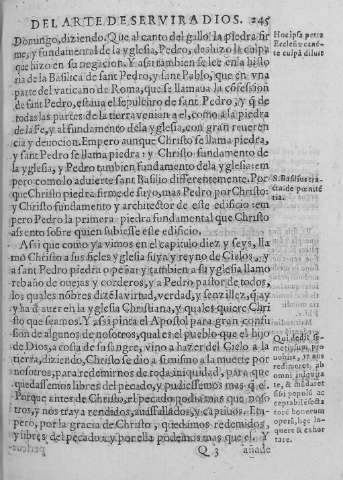 DEL ARTE DE SERVIR A DIOS. 245
Domingo, diziendo. Que al canto del gallo la piedra fir
me, y fundamental de la yglesia, Pedro, deshizo la culpa
que hizo en su negacion. Y assi tambien se lee en la histo
ria de la Basilica de sant Pedro, y sant Pablo, que en vna
parte del vaticano de Roma, que se llamaua la cōfession
de sant Pedro, estaua el sepulchro de sant Pedro, y q̄ de
todas las partes de la tierra venian a el, como a la piedra
de la Fe, y al fundamento de la yglesia, con gran reueren
cia y deuocion. Empero aunque Christo se llama piedra,
y sant Pedro se llama piedra: y Christo fundamento de
la yglesia, y Pedro tambien fundamento de la yglesia: em
pero como lo aduierte sant Basilio differentemente. Por
que Christo piedra firme de suyo, mas Pedro por Christo:
y Christo fundamento y architector de este edificio sem
pero Pedro la primera piedra fundamental que Christo
assento sobre quien subiesse este edificio.
Assi que como ya vimos en el capitulo diez y seys, lla
mó Christo a sus fieles yglesia suya y reyno de Cielos, y
a sant Pedro piedra o peña: y tambien a su yglesia llamo
rebaño de ouejas y corderos, y a Pedro pastor de todos,
los quales nōbres dizē la virtud, verdad, y senzillez, q̄ ay
y ha d auer en la yglesia Christiana, y quales quiere Chri
sto que seamos. Y assi pinta el Apostol para gran confu
sion de algunos de nosotros, qual es el pueblo que el hijo
de Dios, a costa de su sangre, vino a hazer del Cielo a la
tierra, diziendo, Christo se dio a si mismo a la muerte por
nosotros, para redemirnos de toda iniquidad, para que
quedassemos libres del pecado, y pudiessemos mas q̄ el.
Porque antes de Christo, el pecado podia mas que noso
tros, y nos traya rendidos, auassallados, y captiuos. Em
pero, por la gracia de Christo, quedamos redemidos,
y libres del pecado: y por ella podemos mas que el. Y
Q 3 añade
Hoc ipsa petra
Ecclesiæ canē-
te culpā diluit
S. Basilius trac
tat. de pœnitē
tia.
Qui dedit se-
metipsum pro
nobis, vt nos
redimeret, ab
omni iniquita
te, & mūdaret
sibi populū ac
ceptabilē secta
torē bonorum
operū, hęc lo
quere & exhor
tare.